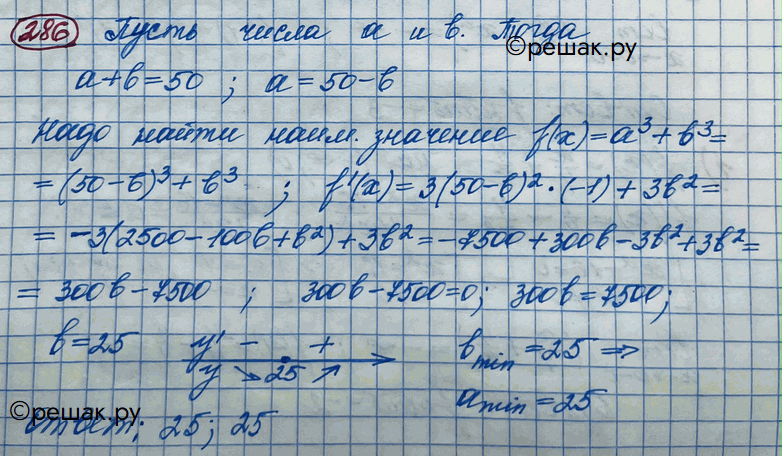 286 Пусть числа a и b. Тогда
©решак.ру
a+b=50 ; a=50-b
Надо найти наим. значение f(x)=a³+b³=
=(50-b)³+b³ ; f'(x)=3(50-b)²·(-1)+3b²=
= -3(2500-100b+b²)+3b²=-7500+300b-3b²+3b²=
= 300b-7500 ; 300b-7500=0; 300b=7500;
b=25 y' - + b min =25 ⇒
y ↘ 25 ↗
a min =25
©решак.ру
Ответ: 25; 25